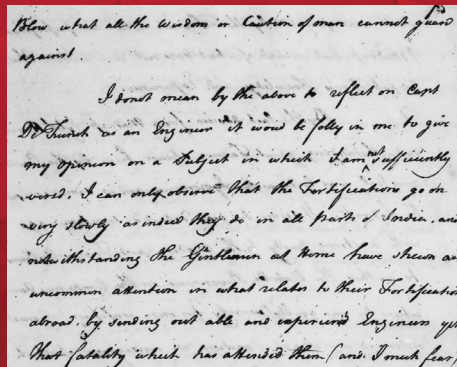 Blow what all the Wisdom or Caution of man cannot guard
against.
I donot mean by the above to reflect on Capt
De Funck as an Engineer it woud be folly in me to give
my opinion on a Subject in which I am not sufficiently
versed, I can only observe that the Fortifications go on
very slowly as indeed they do in all parts of India, and
notwithstanding the Gentlemen at Home have shewn an
uncommon attention in what relates to their Fortification
abroad, by sending out able and experienc'd Engineers yet
that fatality which has attended them (and I much fear